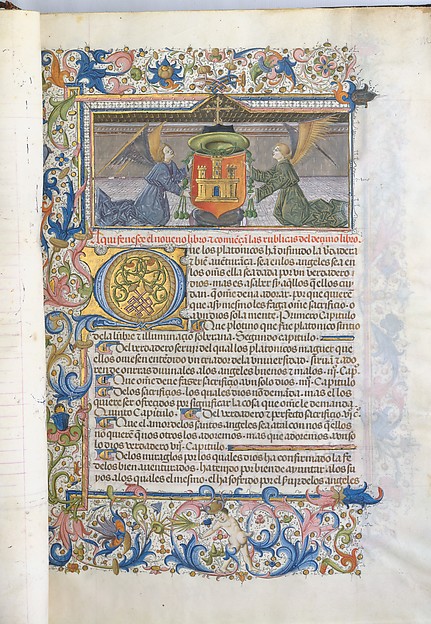 Aqui fenesce el noueno libro & comiença las rublicas del deçimo libro.
Que los platonicos ha difinido la vdadera
& biē auēturāça. sea en los angeles sea en
los oms ella sea dada por vn verdadero
dios. mas es a saber si aqllos q ellos cuy
dan. q om̄e deua adorar. por que quiere
que asi mesmo les faga om̄e sacrifiçio. o
a vn dios sola mente. Primero Capitulo
Que plotino que fue platonico sintio
de la lūbre & illuminaçiō soberana. Segundo capitulo.
Del verdadero seruiçio del qual los platonicos maguer que
ellos ouiesen entēdido vn criador de la vniuersidad.
rende onrras diuinales. a los angeles buenos & malos. iij. Cap.
Que om̄e deue fazer sacrifiçio a vn solo dios. iiij. Capitulo
De los sacrifiçios. los quales dios nō demāda. mas el los
quiere ser ofreçidos por significar la cosa que om̄e le demanda
Quinto Capitulo. Del verdadero & perfecto sacrifiçio. vjº. cº.
Que el amor de los santos angeles sea atal con nos q ellos
no quierē q nos otros los adoremos. mas que adoremos. a vn so
lo dios verdadero vij. Capitulo.
De los miraglos por los quales dios ha confirmado la fe
de los bien auenturados. ha tenpo por bien de ayuntar. a los su
yos. a los quales el mesmo. el ha por el de los angeles